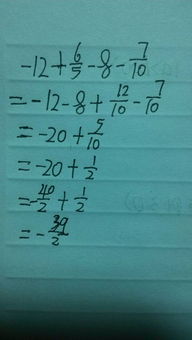 -12+6/5-8-7/10
=-12-8+12/10-7/10
=-20+5/10
=-20+1/2
=-40/2+1/2
=-39/2